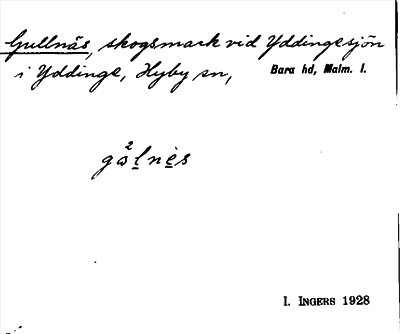 Gullnäs, skogsmark vid Yddingesjön
i Yddinge, Hyby sn, Bara hd, Malm. l.
gω²lnès
I. INGERS 1928